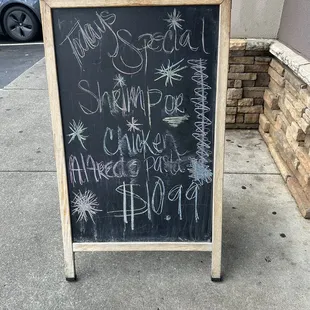 Todays
Special
Shrimp or
Chicken
Alfredo pasta
$10.99